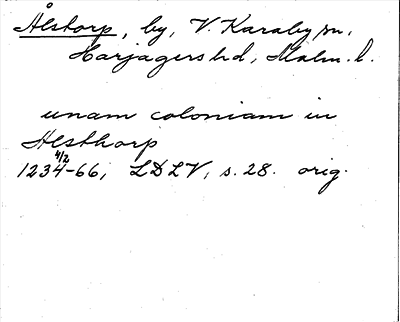 Ålstorp, by, V. Karaby sn,
Harjagers hd, Malm. l.
unam coloniam in
Alsthorp
4/2
1234-66, LDLV, s. 28. orig.